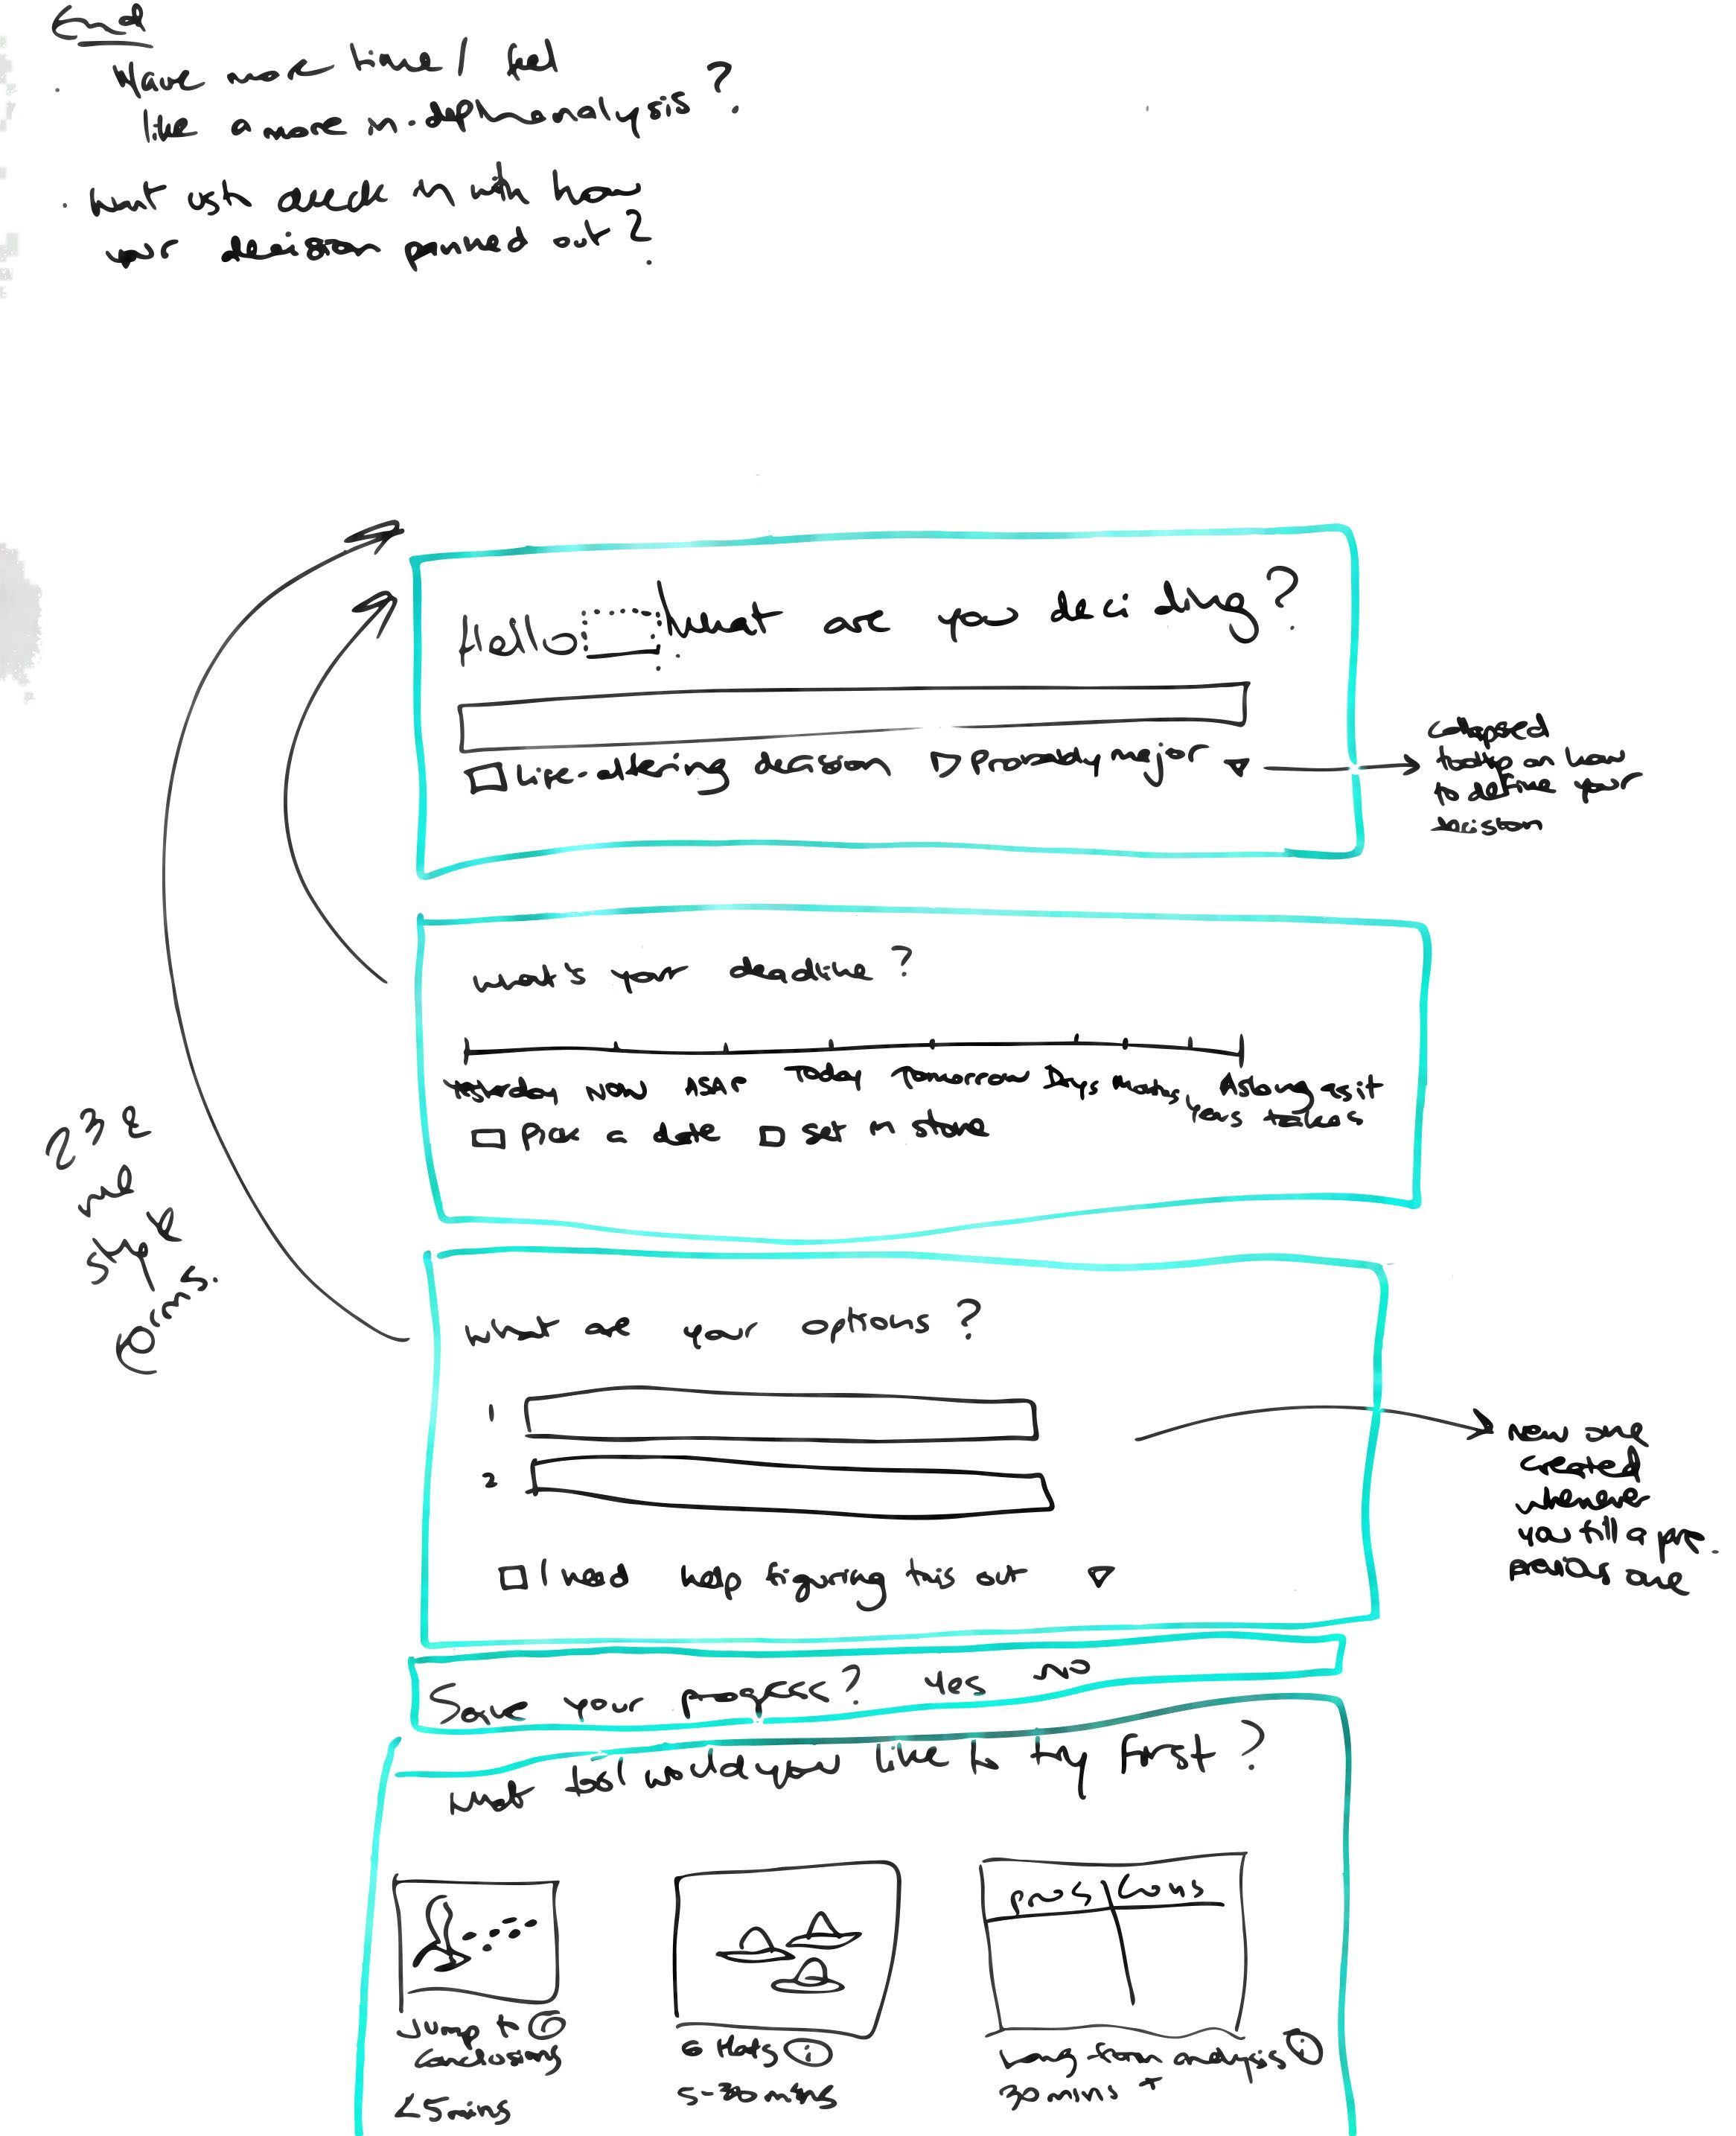 End
· Have more time / feel
like a more in-depth analysis?
· Want us to check in with how
your decision panned out?
Hello . What are you deciding?
Life-altering decision Probably major
Collapsed
tooltip on how
to define your
decision
What's your deadline?
Yesterday Now ASAP Today Tomorrow Days Months Years As long as it
takes
Pick a date Set in stone
23 &
me
style
forms.
What are your options?
1
2
New one
created
whenever
you fill a pre
previous one
I need help figuring this out
Save your progress? Yes No
What tool would you like to try first?
pros cons
Jump to
Conclusions
<5 mins
6 Hats i
5-30 mins
Long-form analysis i
30 mins +